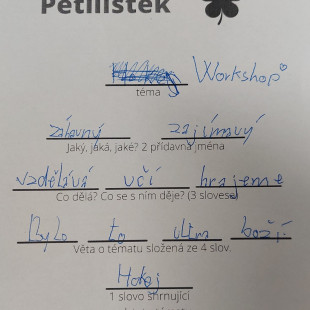 Pětilístek
Workshop
téma
zábavný zajímavý
Jaký, jaká, jaké? 2 přídavná jména
vzdělává učí hrajeme
Co dělá? Co se s ním děje? (3 slovesa)
Bylo to ultra boží.
Věta o tématu složená ze 4 slov.
Hokej
1 slovo shrnující